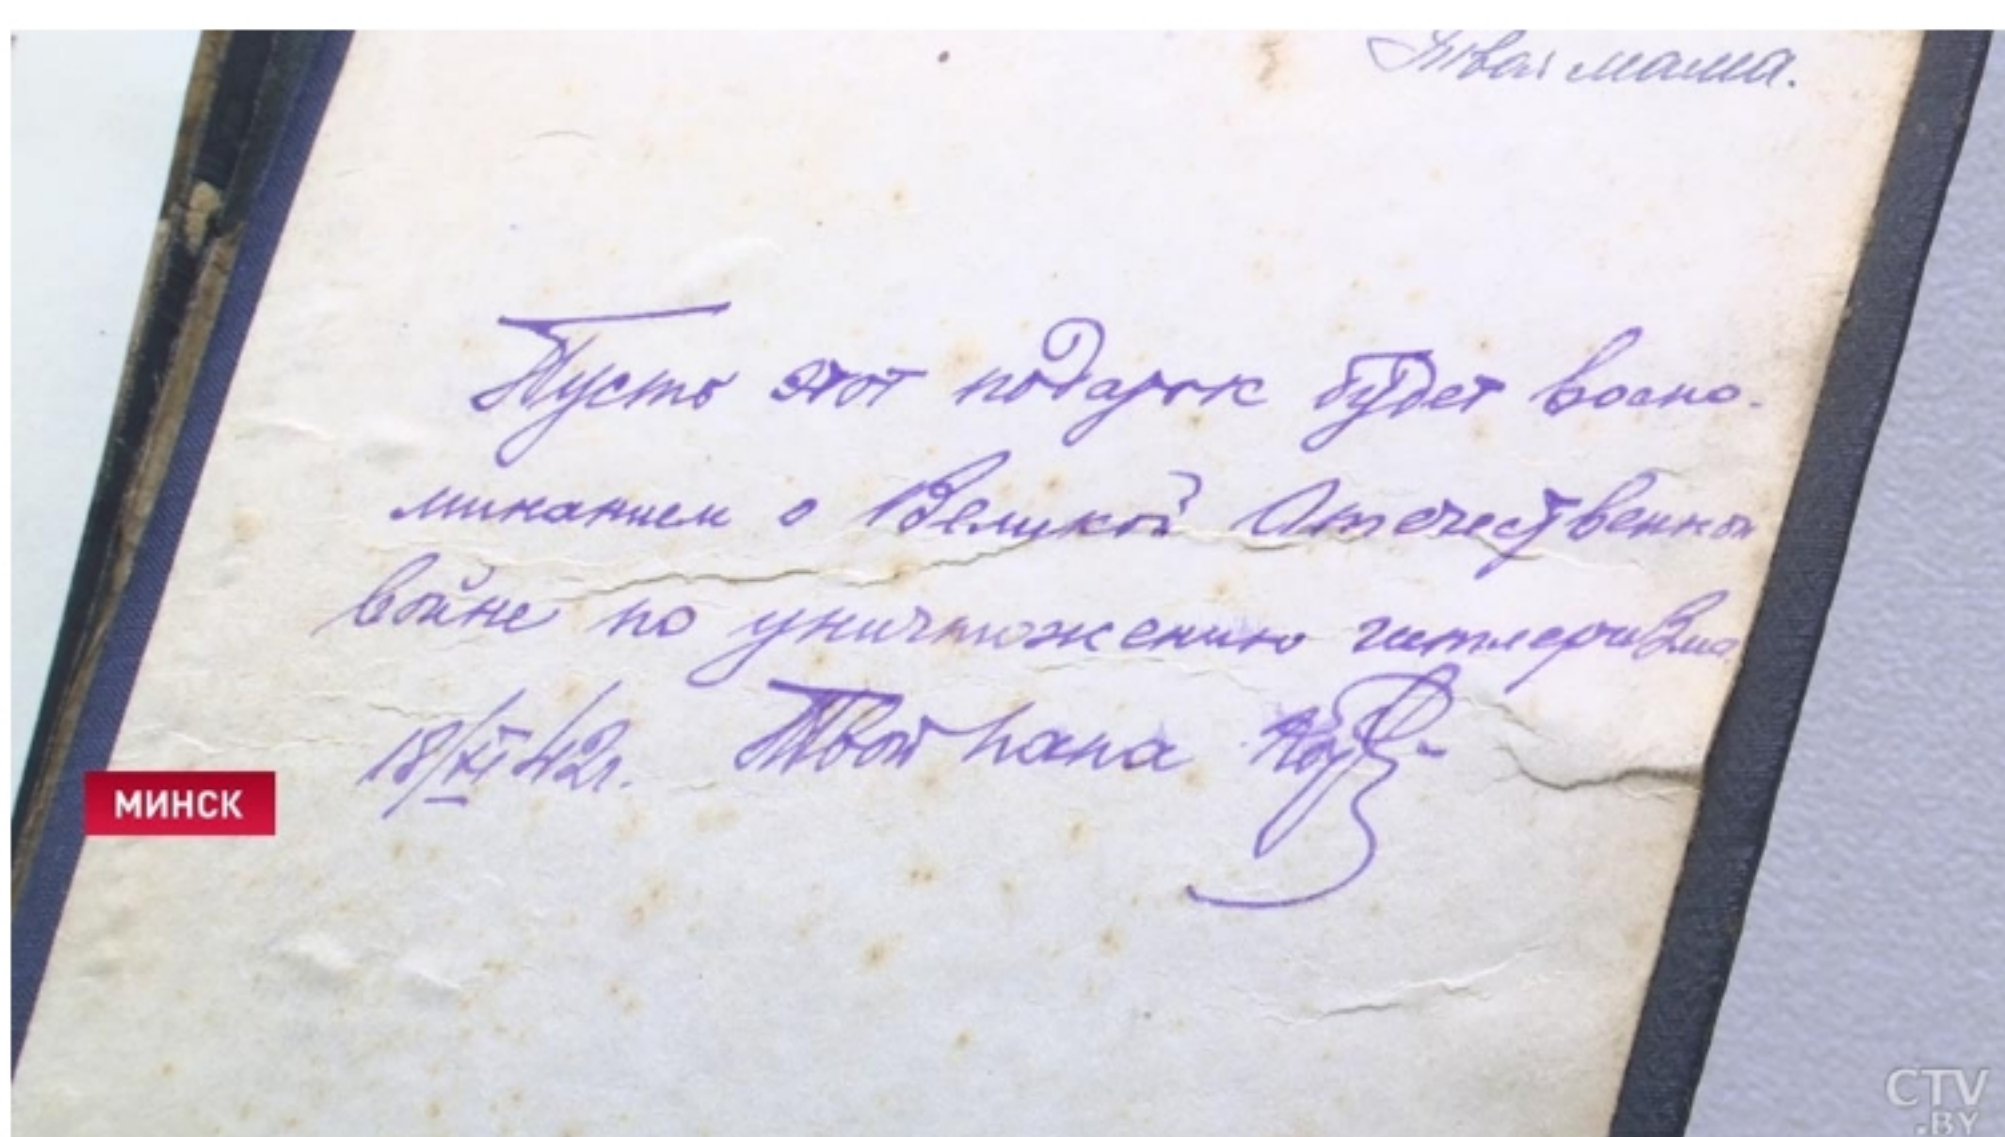 Твоя мама.
Пусть этот подарок будет воспо-
минанием о Великой Отечественной
войне по уничтожению гитлеризма
18/XI 42г. Твой папа
МИНСК
CTV
.BY